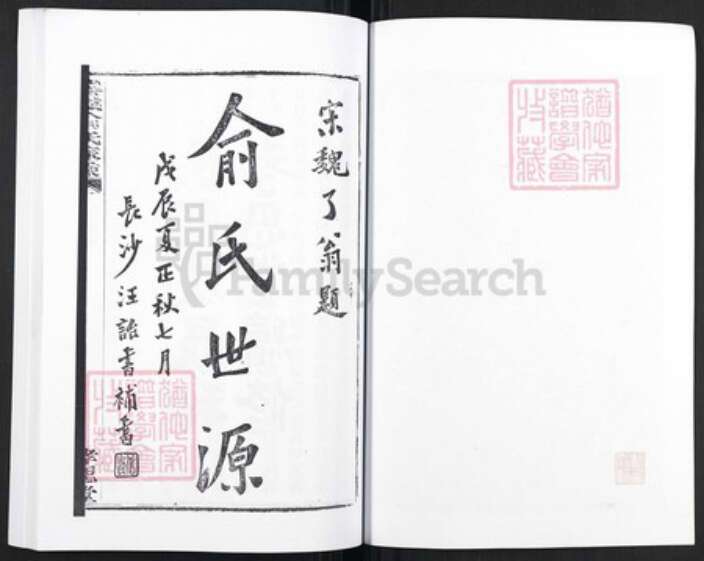 宋魏了翁題
俞氏世源
戊辰夏正秋七月
長沙汪詒書補書
猶他家
譜學會
收藏
FamilySearch